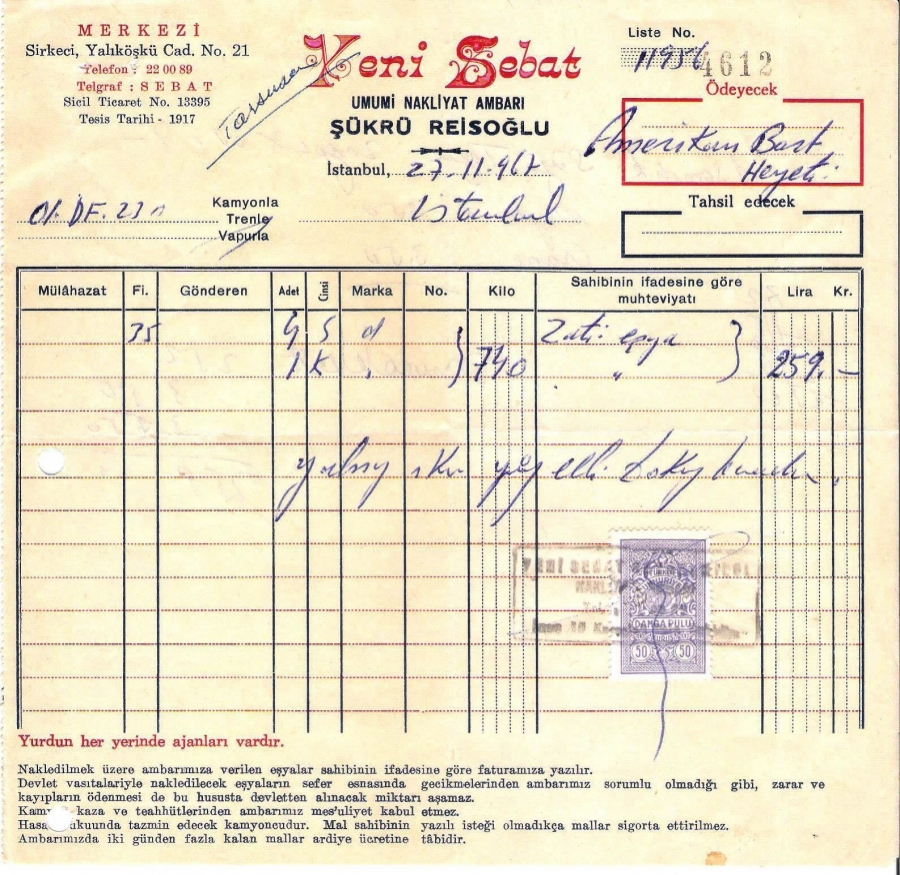 MERKEZİ
Sirkeci, Yalıköşkü Cad. No. 21
Telefon : 22 00 89
Telgraf : SEBAT
Sicil Ticaret No. 13395
Tesis Tarihi - 1917
Yeni Sebat
UMUMİ NAKLİYAT AMBARI
ŞÜKRÜ REİSOĞLU
İstanbul, 27.11.967
İstanbul
Liste No.
11956
4612
Ödeyecek
Amerikan Bort
Heyeti
Tahsil edecek
01.DF.230
Kamyonla
Trenle
Vapurla
Mülâhazat Fi. Gönderen Adet Cinsi Marka No. Kilo Sahibinin ifadesine göre muhteviyatı Lira Kr.
35 4 S d Zati eşya
1 K " 740 " 259.-
Yalnız iki yüz elli dokuz liradır.
YENİ SEBAT
DAMGA PULU
50 50
Yurdun her yerinde ajanları vardır.
Nakledilmek üzere ambarımıza verilen eşyalar sahibinin ifadesine göre faturamıza yazılır.
Devlet vasıtalariyle nakledilecek eşyaların sefer esnasında gecikmelerinden ambarımız sorumlu olmadığı gibi, zarar ve
kayıpların ödenmesi de bu hususta devletten alınacak miktarı aşamaz.
kaza ve teahhütlerinden ambarımız mes'uliyet kabul etmez.
tazmin edecek kamyoncudur. Mal sahibinin yazılı isteği olmadıkça mallar sigorta ettirilmez.
Ambarımızda iki günden fazla kalan mallar ardiye ücretine tâbidir.